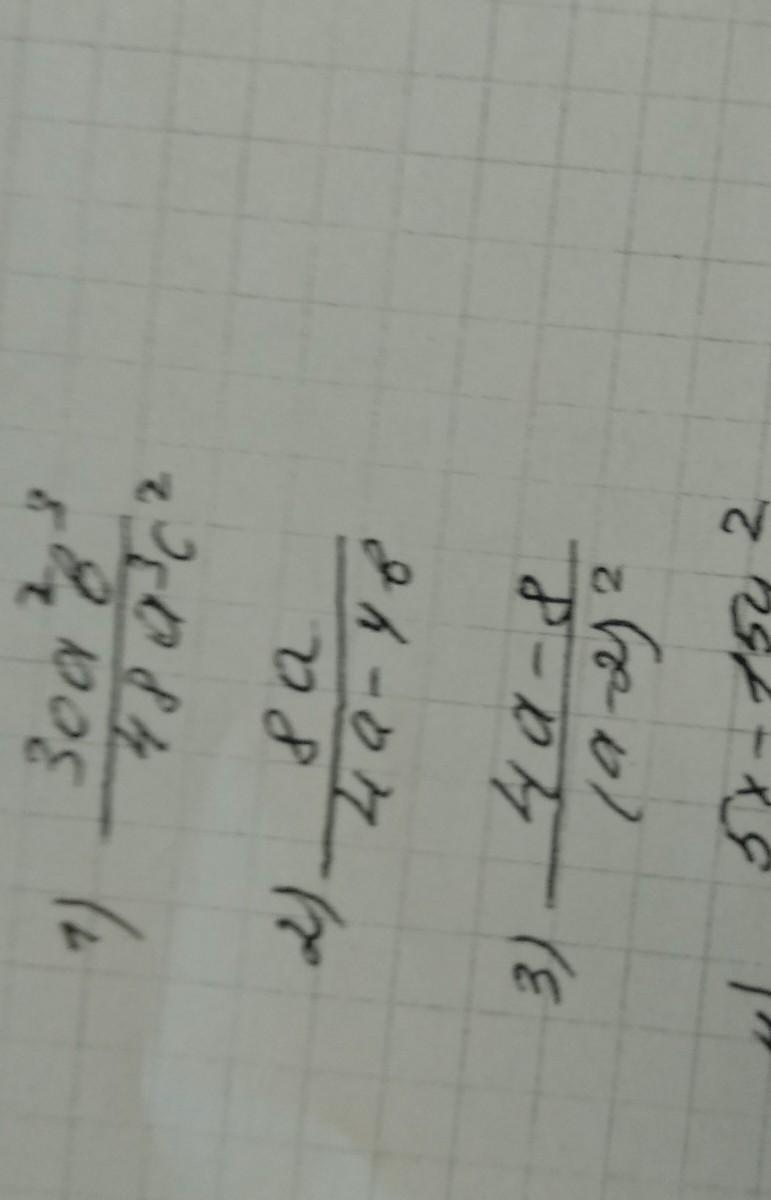 1) 30a²b⁴
48a³c²
2) 8a
4a-4b
3) 4a-8
(a-2)²
5x-15y²